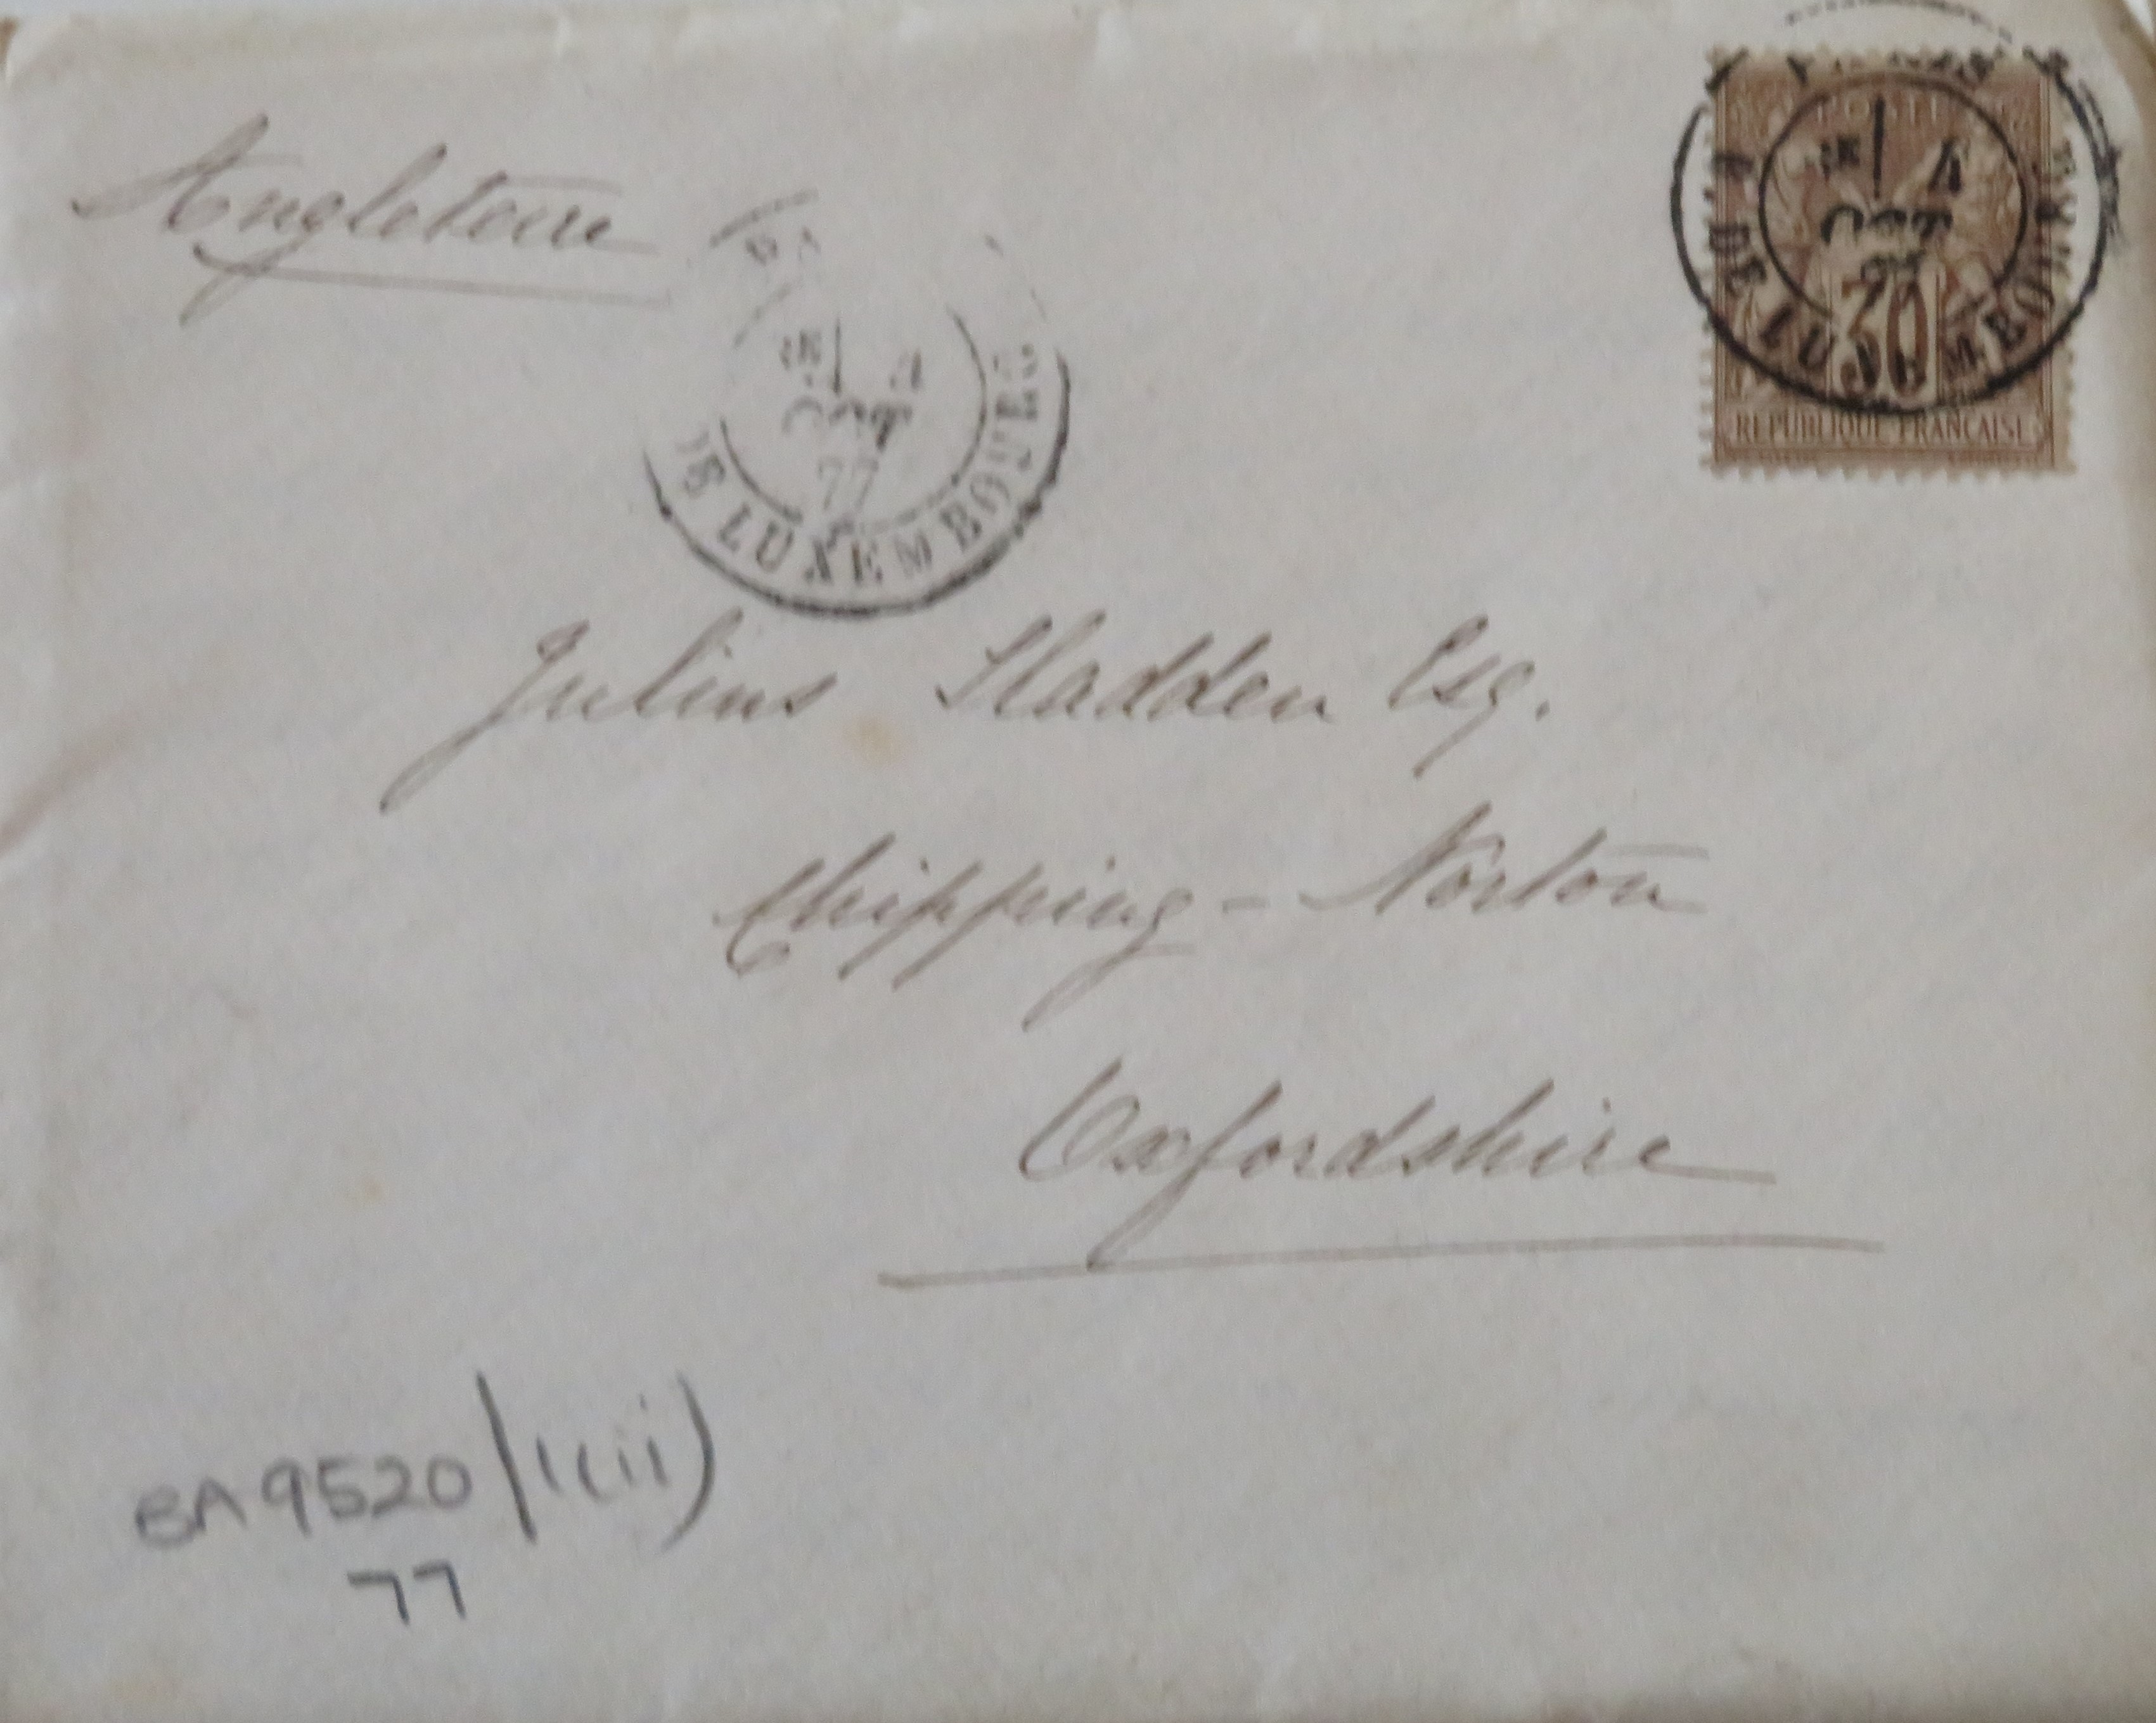 Angleterre
PARIS
4
OCT
77
DE LUXEMBOURG
POSTE
30
REPUBLIQUE FRANCAISE
4
OCT
77
DE LUXEMBOURG
Julius Sladden Esq.
Chipping - Norton
Oxfordshire
BA9520/1(ii)
77